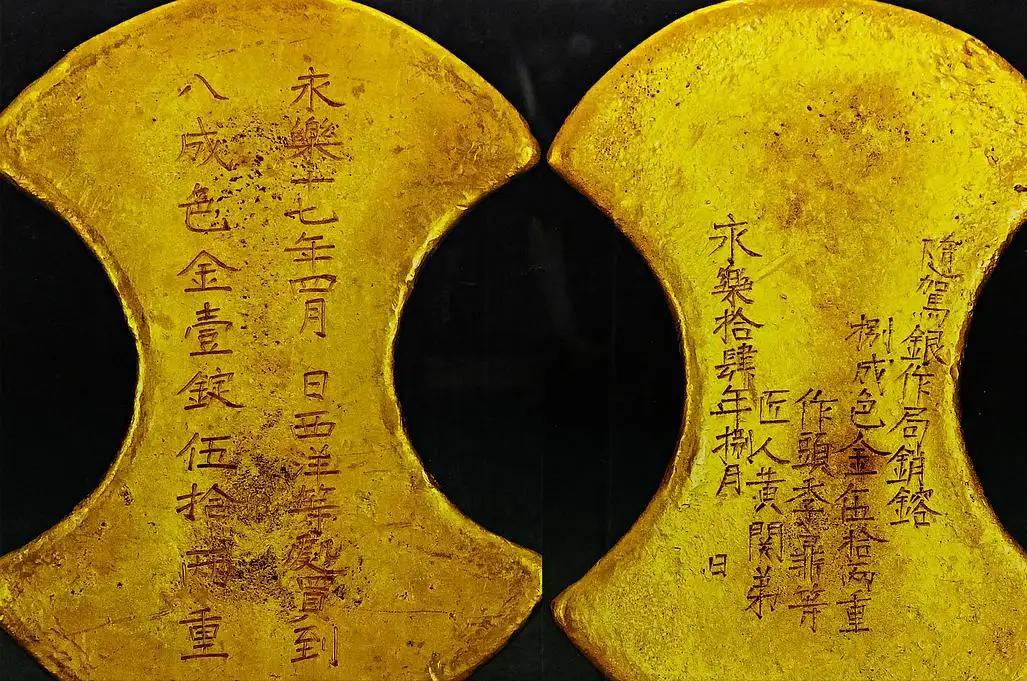 永樂十七年四月 日西洋等處買到
八成色金壹錠伍拾兩重
隨駕銀作局銷鎔
捌成色金伍拾兩重
作頭季鼎等
匠人黄関弟
永樂拾肆年捌月 日